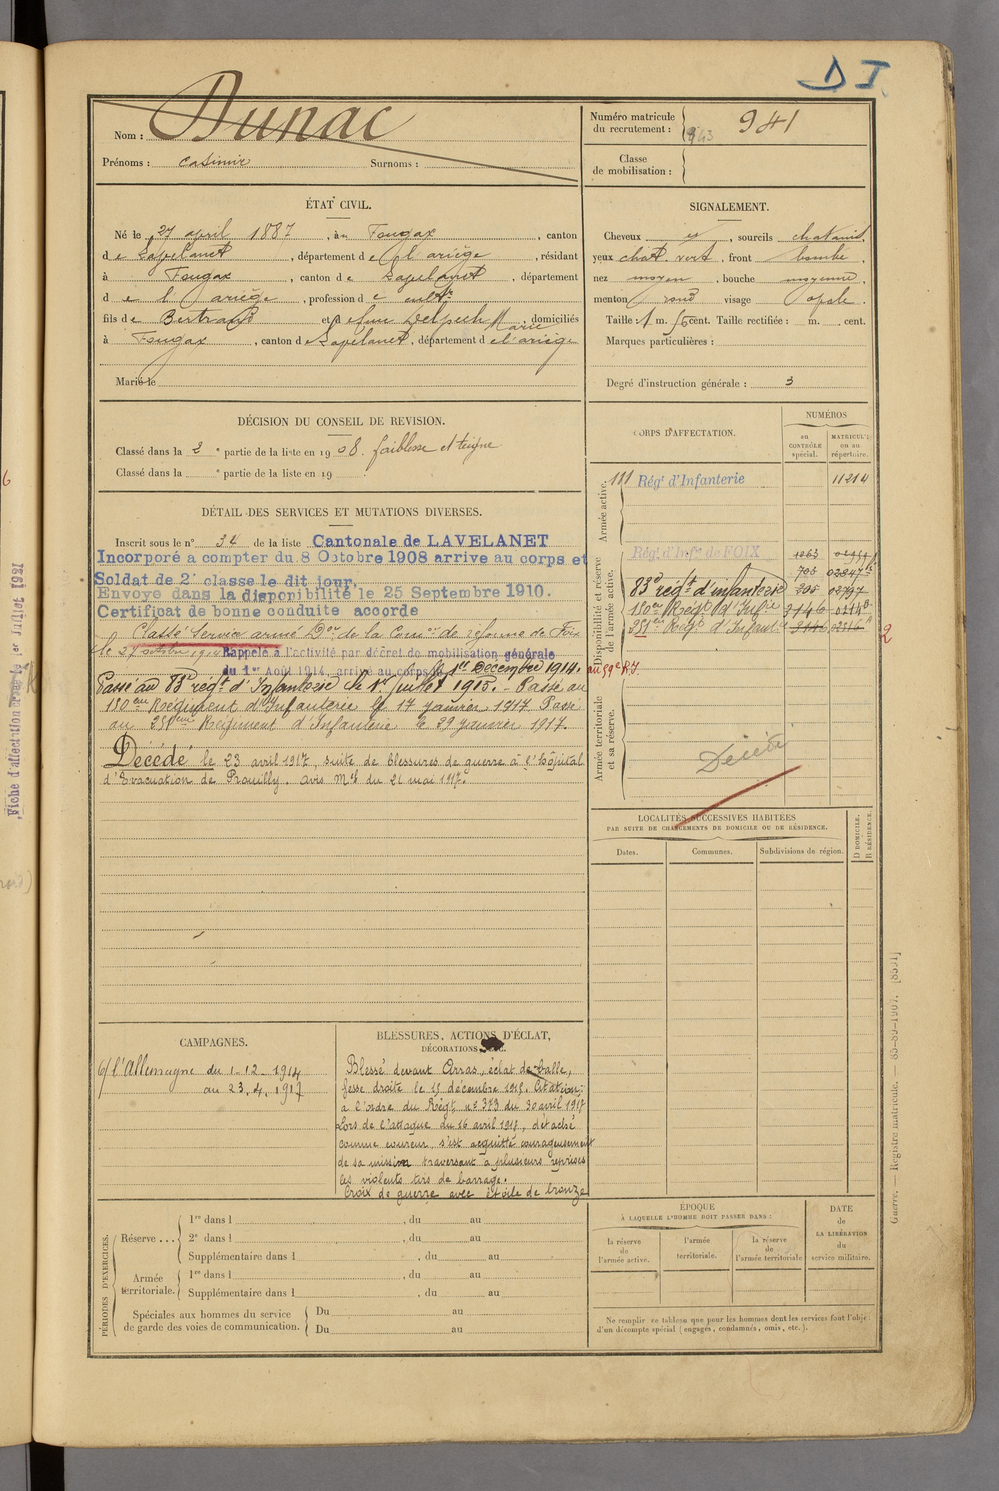 D I.
Nom : Dunac
Prénoms : Casimir Surnoms :
Numéro matricule
du recrutement : 943 941
Classe
de mobilisation :
ÉTAT CIVIL.
Né le 27 april 1887, à Fougax, canton
de Lavelanet, département de l'ariège, résidant
à Fougax, canton de Lavelanet, département
de l'ariège, profession de cultr
fils de Bertrand et de feue Delpech Marie, domiciliés
à Fougax, canton de Lavelanet, département de l'ariège
Marié le
SIGNALEMENT.
Cheveux et, sourcils chatains,
yeux chat. vert, front bombé,
nez moyen, bouche moyenne,
menton rond visage ovale.
Taille : 1 m. 56 cent. Taille rectifiée : m. cent.
Marques particulières :
Degré d'instruction générale : 3
DÉCISION DU CONSEIL DE REVISION.
Classé dans la 2e partie de la liste en 1908. faiblesse et teigne
Classé dans la e partie de la liste en 19
DÉTAIL DES SERVICES ET MUTATIONS DIVERSES.
Inscrit sous le n° 34 de la liste Cantonale de LAVELANET
Incorporé a compter du 8 Octobre 1908 arrive au corps et
Soldat de 2e classe le dit jour.
Envoye dans la disponibilité le 25 Septembre 1910.
Certificat de bonne conduite accorde
Classé Service armé Don de la Comon de réforme de Foix
le 27 octobre 191 Rappelé à l'activité par décret de mobilisation générale
du 1er Août 1914, arrivé au corps le 1er Décembre 1914. au 59e R.I.
Passé au 83e régt d'Infanterie le 1er juillet 1915. - Passé au
130eme Régiment d'Infanterie le 17 janvier 1917. Passé
au 251eme Régiment d'Infanterie le 29 janvier 1917.
Décédé le 23 avril 1917, suite de blessures de guerre à l'hôpital
d'Evacuation de Prouilly. avis Mel du 21 mai 1917.
CORPS D'AFFECTATION.
NUMÉROS
au
CONTRÔLE
spécial.
MATRICULE
ou au
répertoire.
Armée active.
111 Régt d'Infanterie 11214
Disponibilité et réserve
de l'armée active.
Régt d'Infrie de FOIX 1263
83e régt d'infanterie 208 02797
130er Régt d'Infie 3146
251er Régt d'Infantie 3146 02316
2
Armée territoriale
et sa réserve.
Décédé
LOCALITÉS SUCCESSIVES HABITÉES
PAR SUITE DE CHANGEMENTS DE DOMICILE OU DE RÉSIDENCE.
Dates. Communes. Subdivisions de région. D DOMICILE. R RÉSIDENCE.
CAMPAGNES.
c/ l'Allemagne du 1-12-1914
au 23.4.1917
BLESSURES, ACTIONS D'ÉCLAT,
DÉCORATIONS, ETC.
Blessé devant Arras, éclat de balle,
fesse droite le 15 décembre 1915. Citation:
à l'ordre du Régt n° 373 du 30 avril 1917
Lors de l'attaque du 16 avril 1917, détaché
comme coureur, s'est acquitté courageusement
de sa mission traversant à plusieurs reprises
les violents tirs de barrage.
Croix de guerre avec étoile de bronze
PÉRIODES D'EXERCICES.
Réserve ... 1re dans l , du au
2e dans l , du au
Supplémentaire dans l , du au
Armée
territoriale. 1re dans l , du au
Supplémentaire dans l , du au
Spéciales aux hommes du service
de garde des voies de communication. Du au
Du au
ÉPOQUE
À LAQUELLE L'HOMME DOIT PASSER DANS :
la réserve
de
l'armée active.
l'armée
territoriale.
la réserve
de
l'armée territoriale
DATE
de
LA LIBÉRATION
du
service militaire.
Ne remplir ce tableau que pour les hommes dont les services font l'objet
d'un décompte spécial (engagés, condamnés, omis, etc.).
Guerre. — Registre matricule. — 83-89-1907. [8391]
Fiche d'affectation le 1er Juillet 1921